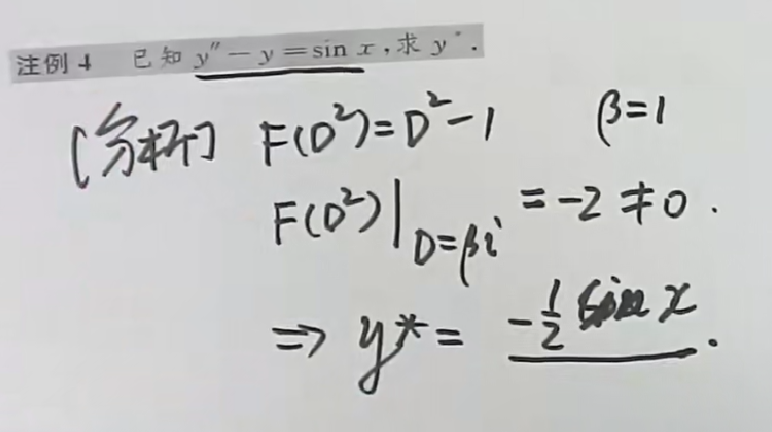 注例 4 已知 y″ − y = sin x, 求 y*.
[分析] F(D²)=D²−1 β=1
F(D²)|D=βi =−2≠0.
⇒ y*= −1/2 sin x.